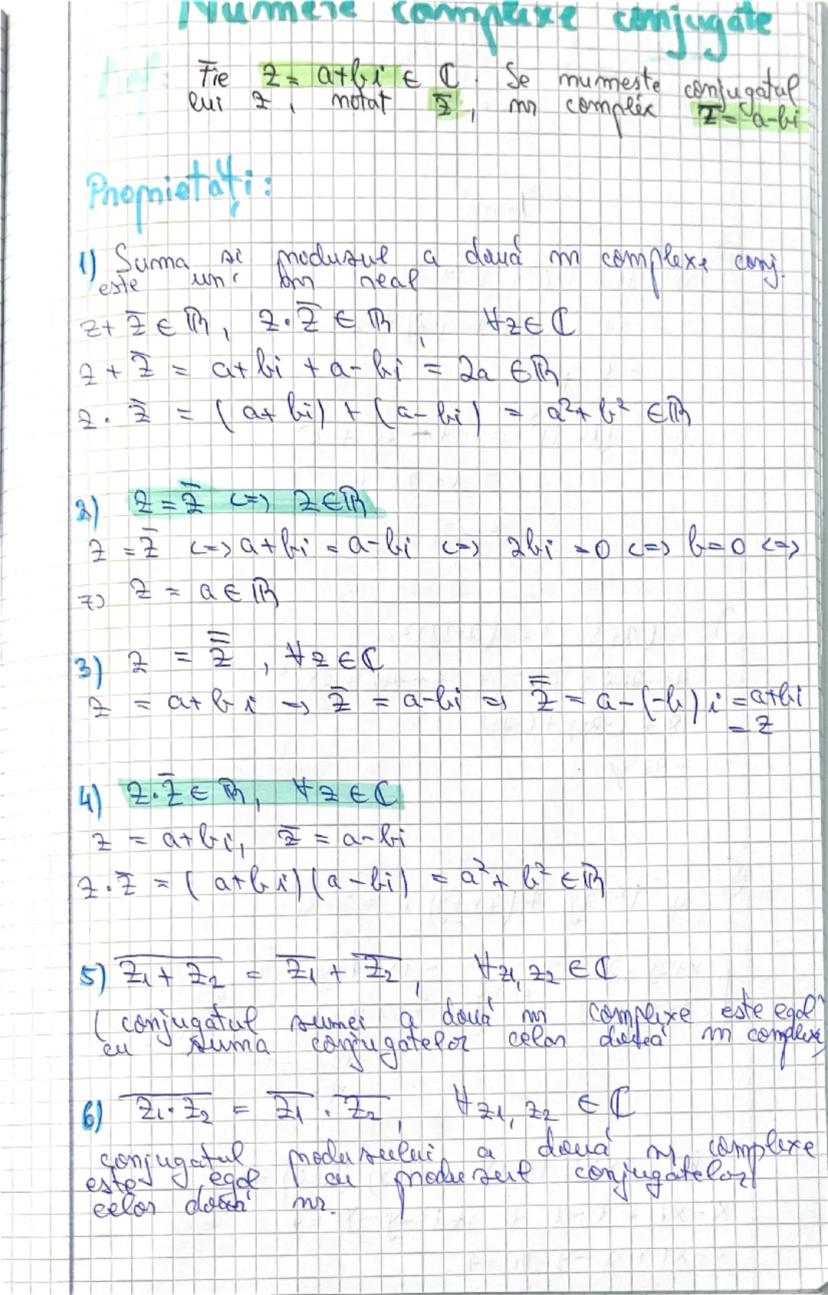 Numere complexe conjugate
Def: Fie z = a+bi ∈ ℂ. Se numeste conjugatul
lui z, notat z̄, nr complex z̄ = a-bi
Proprietăți:
1) Suma si produsul a două nr complexe conj.
este un nr real
z+z̄ ∈ ℝ, z·z̄ ∈ ℝ, ∀z∈ℂ
z + z̄ = a+bi + a-bi = 2a ∈ℝ
z · z̄ = (a+bi) + (a-bi) = a²+b² ∈ℝ
2) z = z̄ <=> z∈ℝ
z = z̄ <=> a+bi = a-bi <=> 2bi = 0 <=> b=0 <=>
=> z = a∈ℝ
3) z = z̿, ∀z∈ℂ
z = a+bi => z̄ = a-bi => z̿ = a-(-b)i = a+bi
= z
4) z·z̄ ∈ ℝ, ∀z∈ℂ
z = a+bi, z̄ = a-bi
z·z̄ = (a+bi)(a-bi) = a²+b² ∈ℝ
5) \overline{z₁+z₂} = \overline{z₁} + \overline{z₂}, ∀z₁,z₂ ∈ℂ
(conjugatul sumei a două nr complexe este egal
cu suma conjugatelor celor două nr complexe
6) \overline{z₁·z₂} = \overline{z₁} · \overline{z₂}, ∀z₁,z₂ ∈ ℂ
conjugatul produsului a două nr complexe
este egal cu produsul conjugatelor
celor două nr.